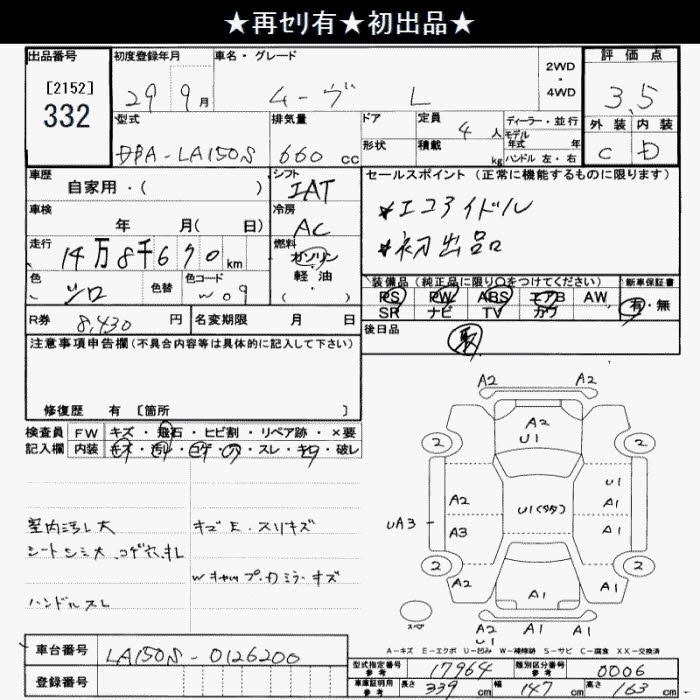 ★再ｾﾘ有★初出品★
出品番号
[2152]
332
初度登録年月
29 9月
車名・グレード
ムーヴ L
2WD
・
4WD
評価点
3.5
外装 内装
C D
型式
DBA-LA150S
排気量
660 cc
ドア
形状
定員
4 人
積載
kg
ディーラー・並行
モデル
年式 年
ハンドル 左・右
車歴
自家用・( )
シフト
IAT
セールスポイント (正常に機能するものに限ります)
*エコアイドル
*初出品
車検
年 月( 日)
冷房
AC
走行
14万8千670 km
燃料
ガソリン
軽油
・( )
色
シロ
色替
色コード
W09
装備品(純正品に限り○をつけてください)
PS PW ABS エアB AW
SR ナビ TV カワ
新車保証書
有・無
R券 8,430 円
名変期限 月 日
後日品
取
注意事項申告欄(不具合内容等は具体的に記入して下さい)
修復歴 有 [箇所 ]
検査員
記入欄
FW キズ・飛石・ヒビ割・リペア跡・×要
内装 キズ・汚レ・コゲ・穴・スレ・キレ・破レ
室内汚レ大
シートシミ大、コゲ穴、キレ
ハンドルスレ
キズE.スリキズ
Wキャップ.Dミラーキズ
A2 A2
A2
U1
2 2
A2
A3
UA3
U1(多々)
U1
A1
A1
2 2
A2
A1
A1
A1 A1
U1
スペア
A-キズ E-エクボ U-凹み W-補修跡 S-サビ C-腐食 XX-交換済
車台番号
LA150S-0126200
登録番号
型式指定番号
参考
17964
類別区分番号
参考
0006
車庫証明用
参考
長さ 339 cm
幅 147 cm
高さ 163 cm